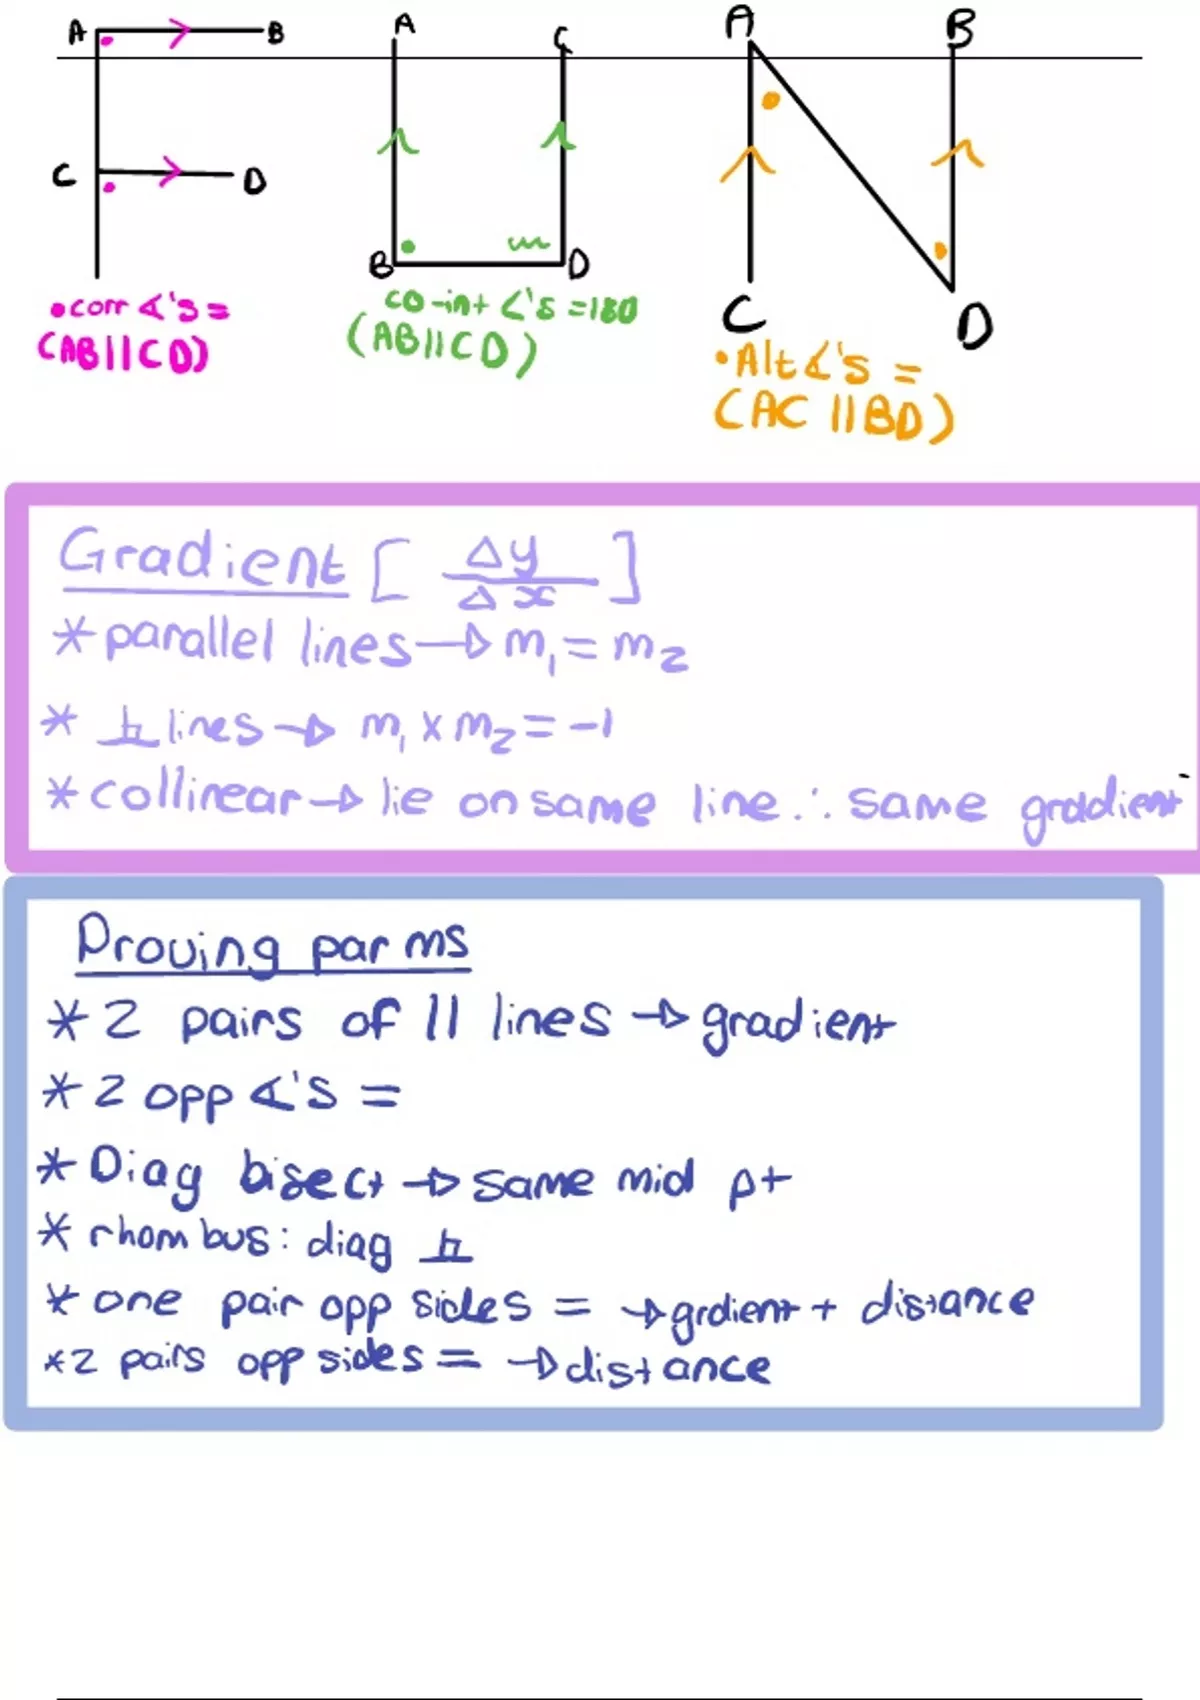 A B
C D
• corr ∢'s =
(AB || CD)
A C
B D
co-int <'s = 180
(AB || CD)
A B
C D
• Alt ∢'s =
(AC || BD)
Gradient [ Δy / Δx ]
* parallel lines → m₁ = m₂
* ⊥ lines → m₁ x m₂ = -1
* collinear → lie on same line ∴ same gradient
Proving parms
* 2 pairs of || lines → gradient
* 2 opp ∢'s =
* Diag bisect → same mid pt
* rhombus: diag ⊥
* one pair opp sides = → grdient + distance
* 2 pairs opp sides = → distance